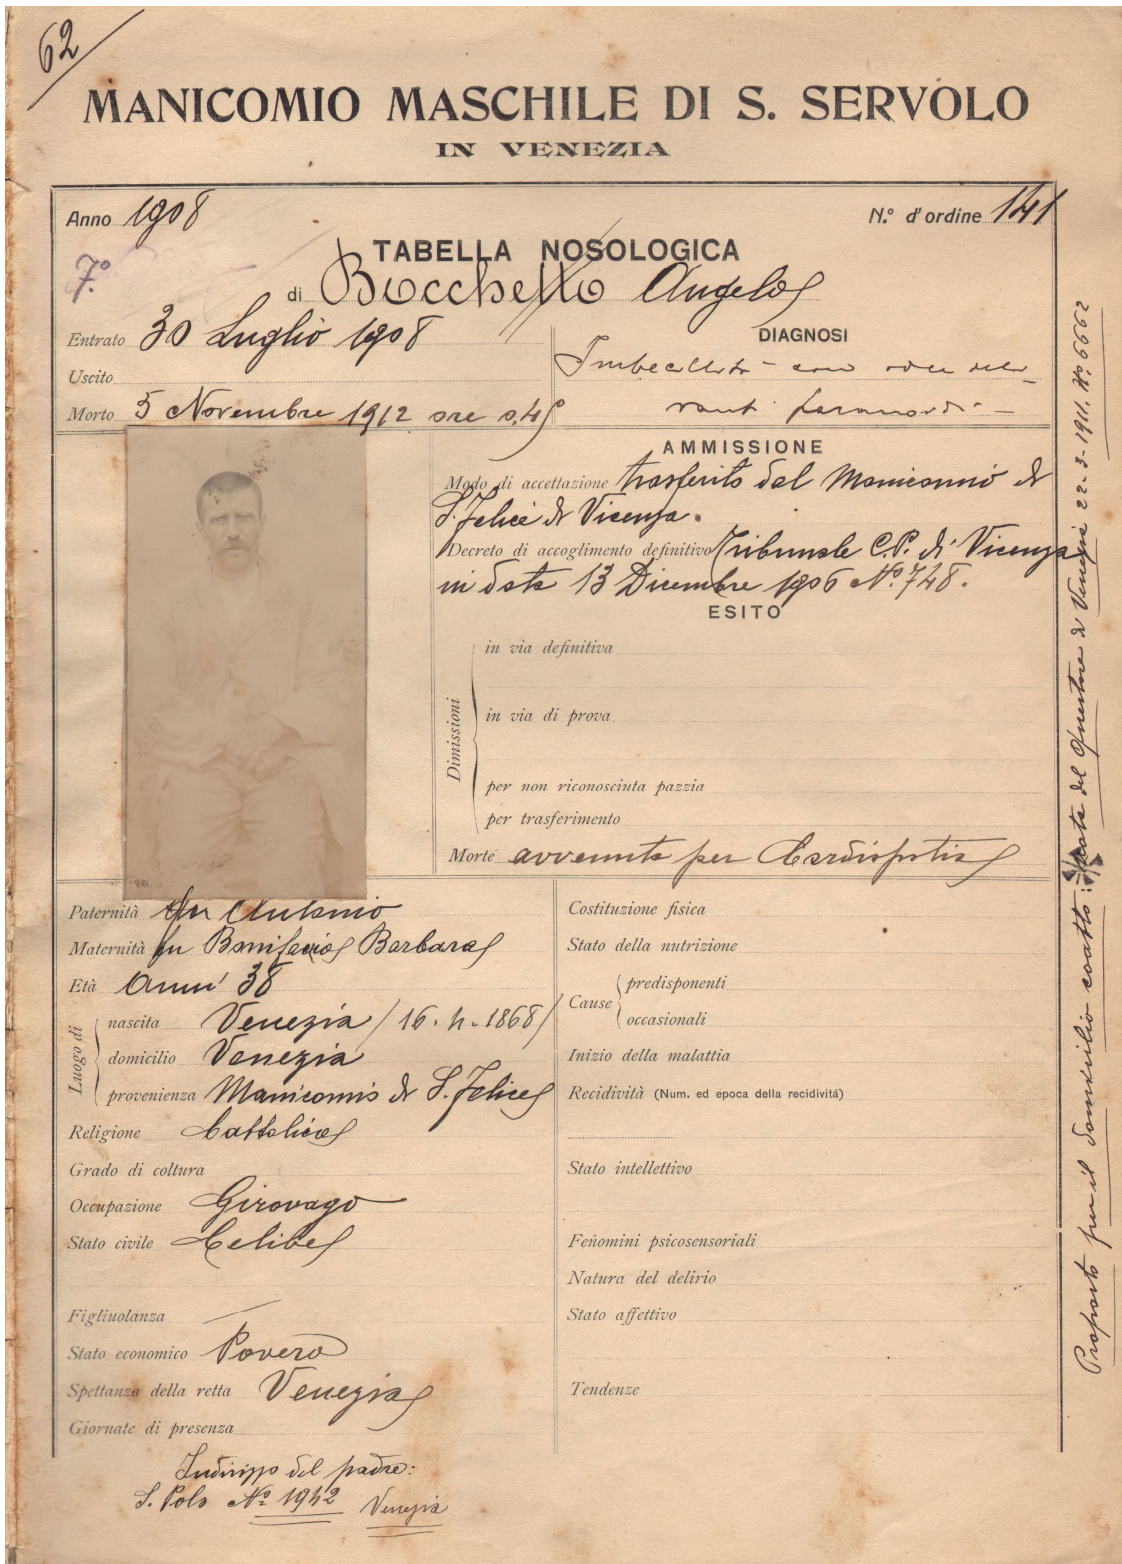 62
MANICOMIO MASCHILE DI S. SERVOLO
IN VENEZIA
Anno 1908
N.º d'ordine 141
7º
TABELLA NOSOLOGICA
di Bocchetto Angelo
Entrato 30 Luglio 1908
Uscito
Morto 5 Novembre 1912 ore
DIAGNOSI
Imbecillità - con idee deli-
ranti
AMMISSIONE
Modo di accettazione trasferito dal Manicomio di
S. Felice di Vicenza.
Decreto di accoglimento definitivo Tribunale C.P. di Vicenza
in data 13 Dicembre 1906 Nº 748.
ESITO
Dimissioni
in via definitiva
in via di prova
per non riconosciuta pazzia
per trasferimento
Morte avvenuta per
Paternità fu Antonio
Maternità fu Bonifacio Barbara
Età Anni 38
Luogo di
nascita Venezia / 16. 1868 /
domicilio Venezia
provenienza Manicomio di S. Felice
Religione Cattolica
Grado di coltura
Occupazione Girovago
Stato civile Celibe
Figliuolanza —
Stato economico Povero
Spettanza della retta Venezia
Giornate di presenza
Indirizzo del padre:
S. Polo Nº 1942 Venezia
Costituzione fisica
Stato della nutrizione
Cause
predisponenti
occasionali
Inizio della malattia
Recidività (Num. ed epoca della recidivitá)
Stato intellettivo
Fenomini psicosensoriali
Natura del delirio
Stato affettivo
Tendenze
Proposto per il domicilio coatto: Nota del Questore di Venezia 22-3-1911. Nº 6662